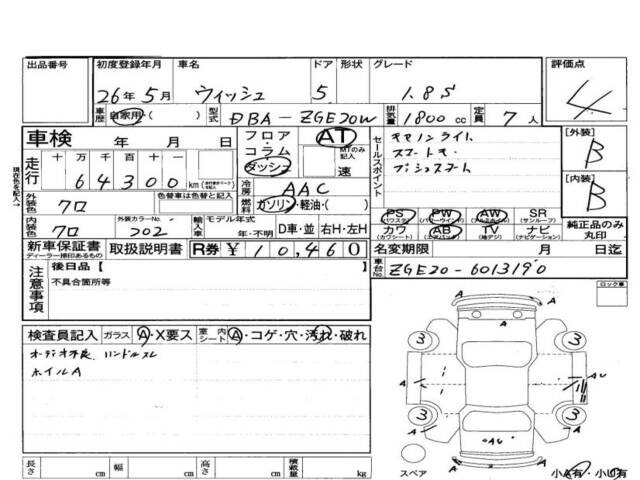 出品番号 初度登録年月 車名 ドア 形状 グレード 評価点
26年5月 ウィッシュ 5 1.8S 4
車歴 自家用・( ) 型式 DBA-ZGE20W 排気量 1800cc 定員 7人
車検 年 月 日 フロア・コラム・ダッシュ AT MTのみ記入 速
セールスポイント キセノンライト
スマートキー
プッシュスタート
[外装] B
[内装] B
現況を記入→
走行 十万千百十
64300km
外装色 クロ 色替車は色替と記入
冷房 AAC
燃料 ガソリン・軽油・( )
内装色 クロ 外装カラーNo. 202 輸入車 モデル年式 年・不明 D車・並 右H・左H
PS (パワステ) PW (パワーウインド) AW (アルミホイル) SR (サンルーフ)
カワ (カワシート) AB (エアバッグ) TV (地デジ) ナビ (ナビゲーション)
純正品のみ丸印
新車保証書 ディーラー捺印あるもの 取扱説明書 R券 ¥10,460
名変期限 月 日迄
車台No. ZGE20-6013190
注意事項 後日品【
不具合箇所等
ロック車
検査員記入 ガラス A・X要ス 室内シート A・コゲ・穴・汚れ・破れ
オーディオ不良 ハンドルスレ
ホイルA
A A
3 3
A A AU
3 3
A AU A
A
スペア 小A有・小U有
長さ cm 幅 cm 高さ cm 積載量 kg